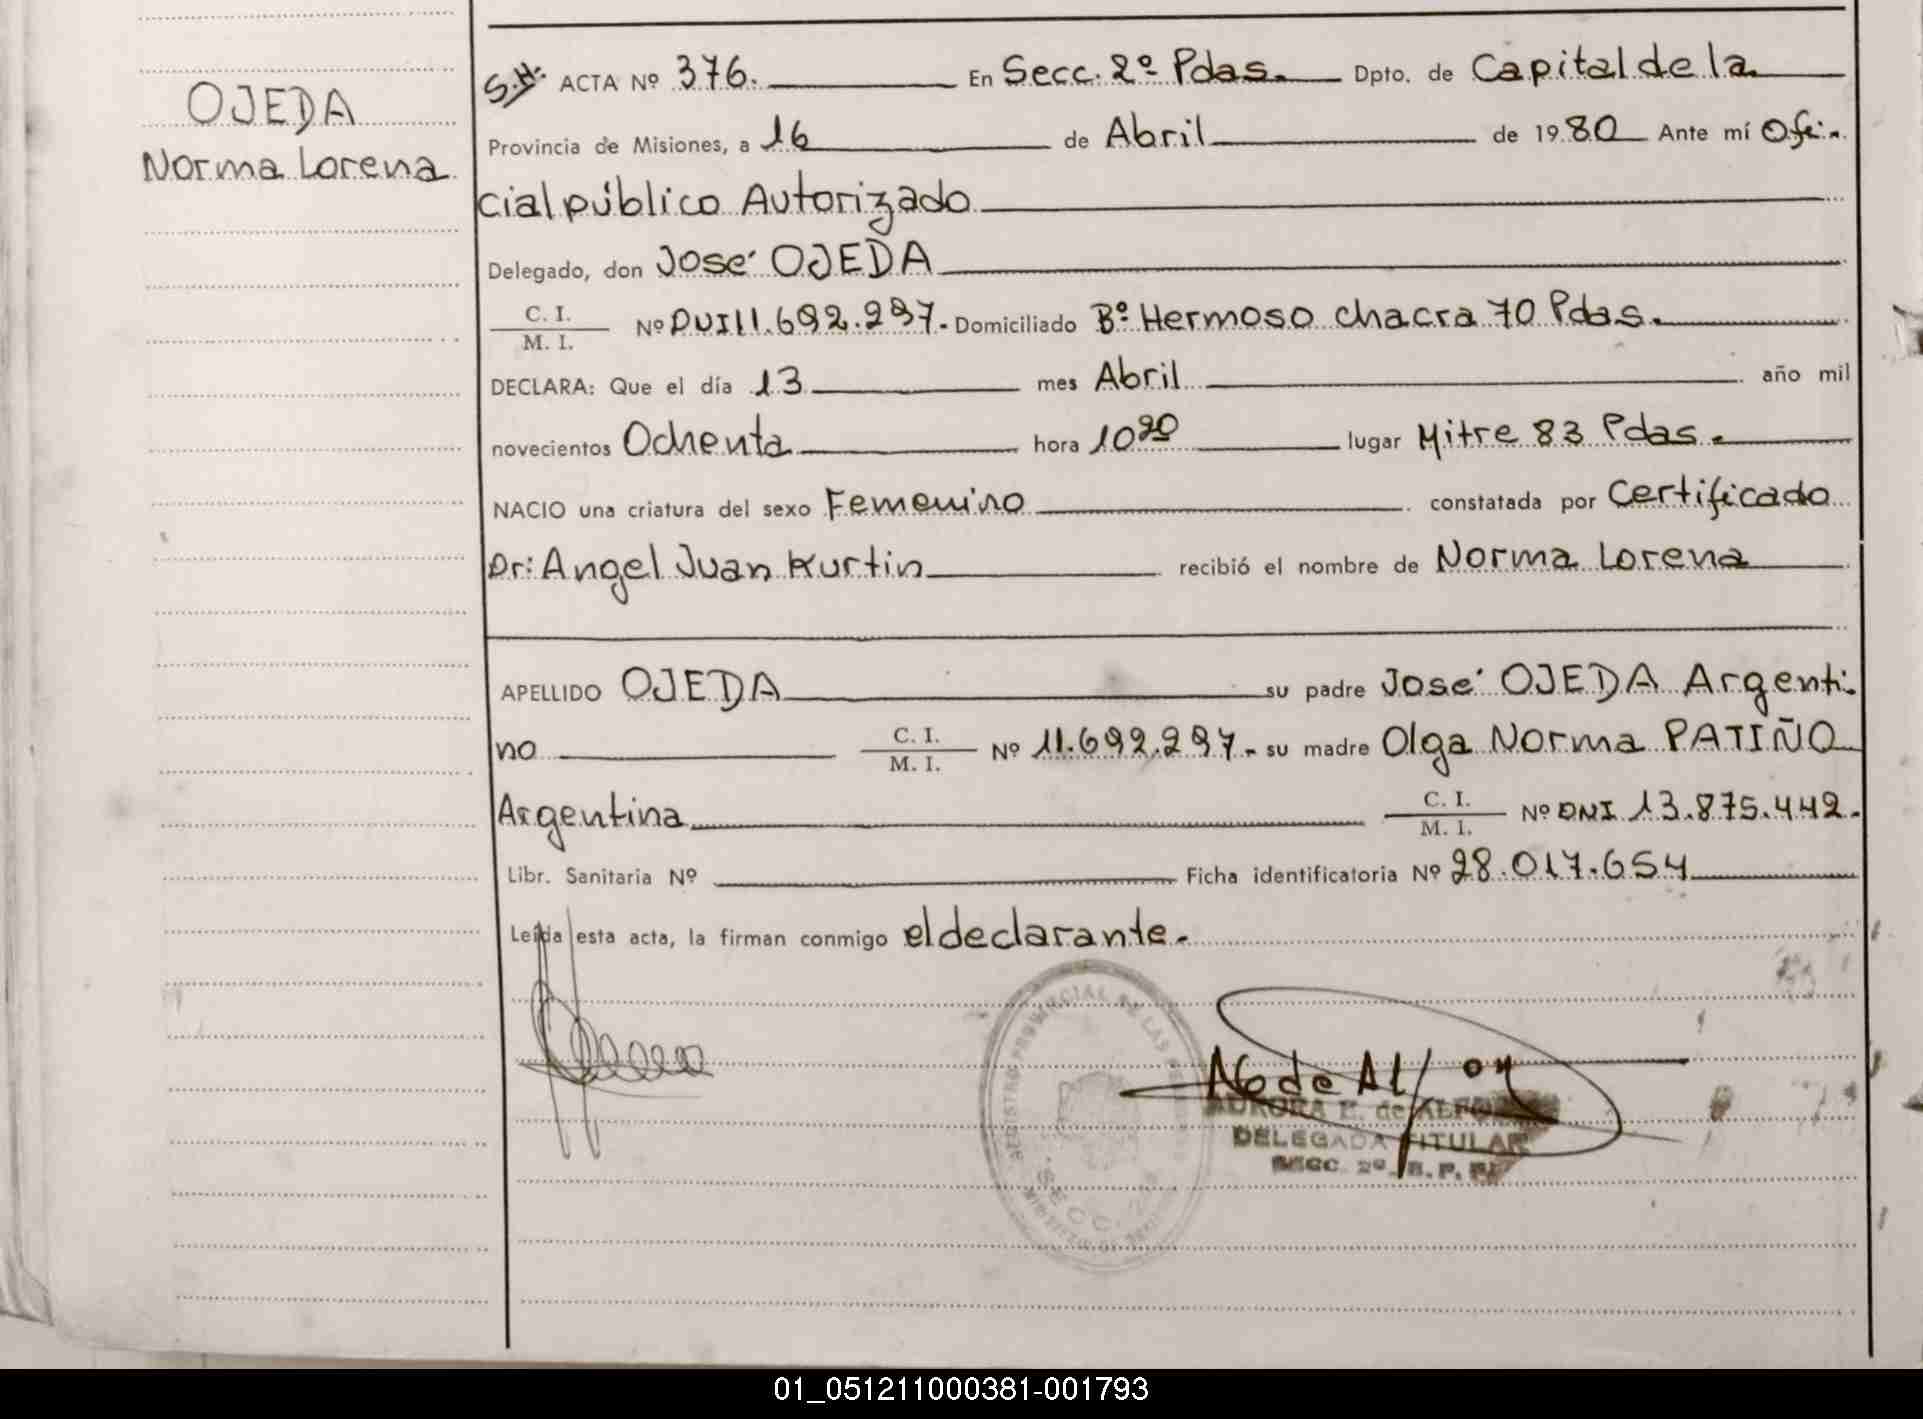 OJEDA
Norma Lorena
S.H. ACTA Nº 376. En Secc. 2º Pdas. Dpto. de Capital de la
Provincia de Misiones, a 16 de Abril de 1980 Ante mí Ofi-
cial público Autorizado
Delegado, don José OJEDA
C. I.
M. I. Nº DNI 11.692.297. Domiciliado Bº Hermoso chacra 70 Pdas.
DECLARA: Que el día 13 mes Abril año mil
novecientos Ochenta hora 10 20 lugar Mitre 83 Pdas.
NACIO una criatura del sexo Femenino constatada por Certificado
Dr: Angel Juan Kurtin recibió el nombre de Norma Lorena
APELLIDO OJEDA su padre José OJEDA Argenti-
no C. I.
M. I. Nº 11.692.297.- su madre Olga Norma PATIÑO
Argentina C. I.
M. I. Nº DNI 13.875.442.
Libr. Sanitaria Nº Ficha identificatoria Nº 28.017.654
Leída esta acta, la firman conmigo el declarante.-
AURORA E. de ALFO
DELEGADA TITULAR
SECC. 2º
01_051211000381-001793